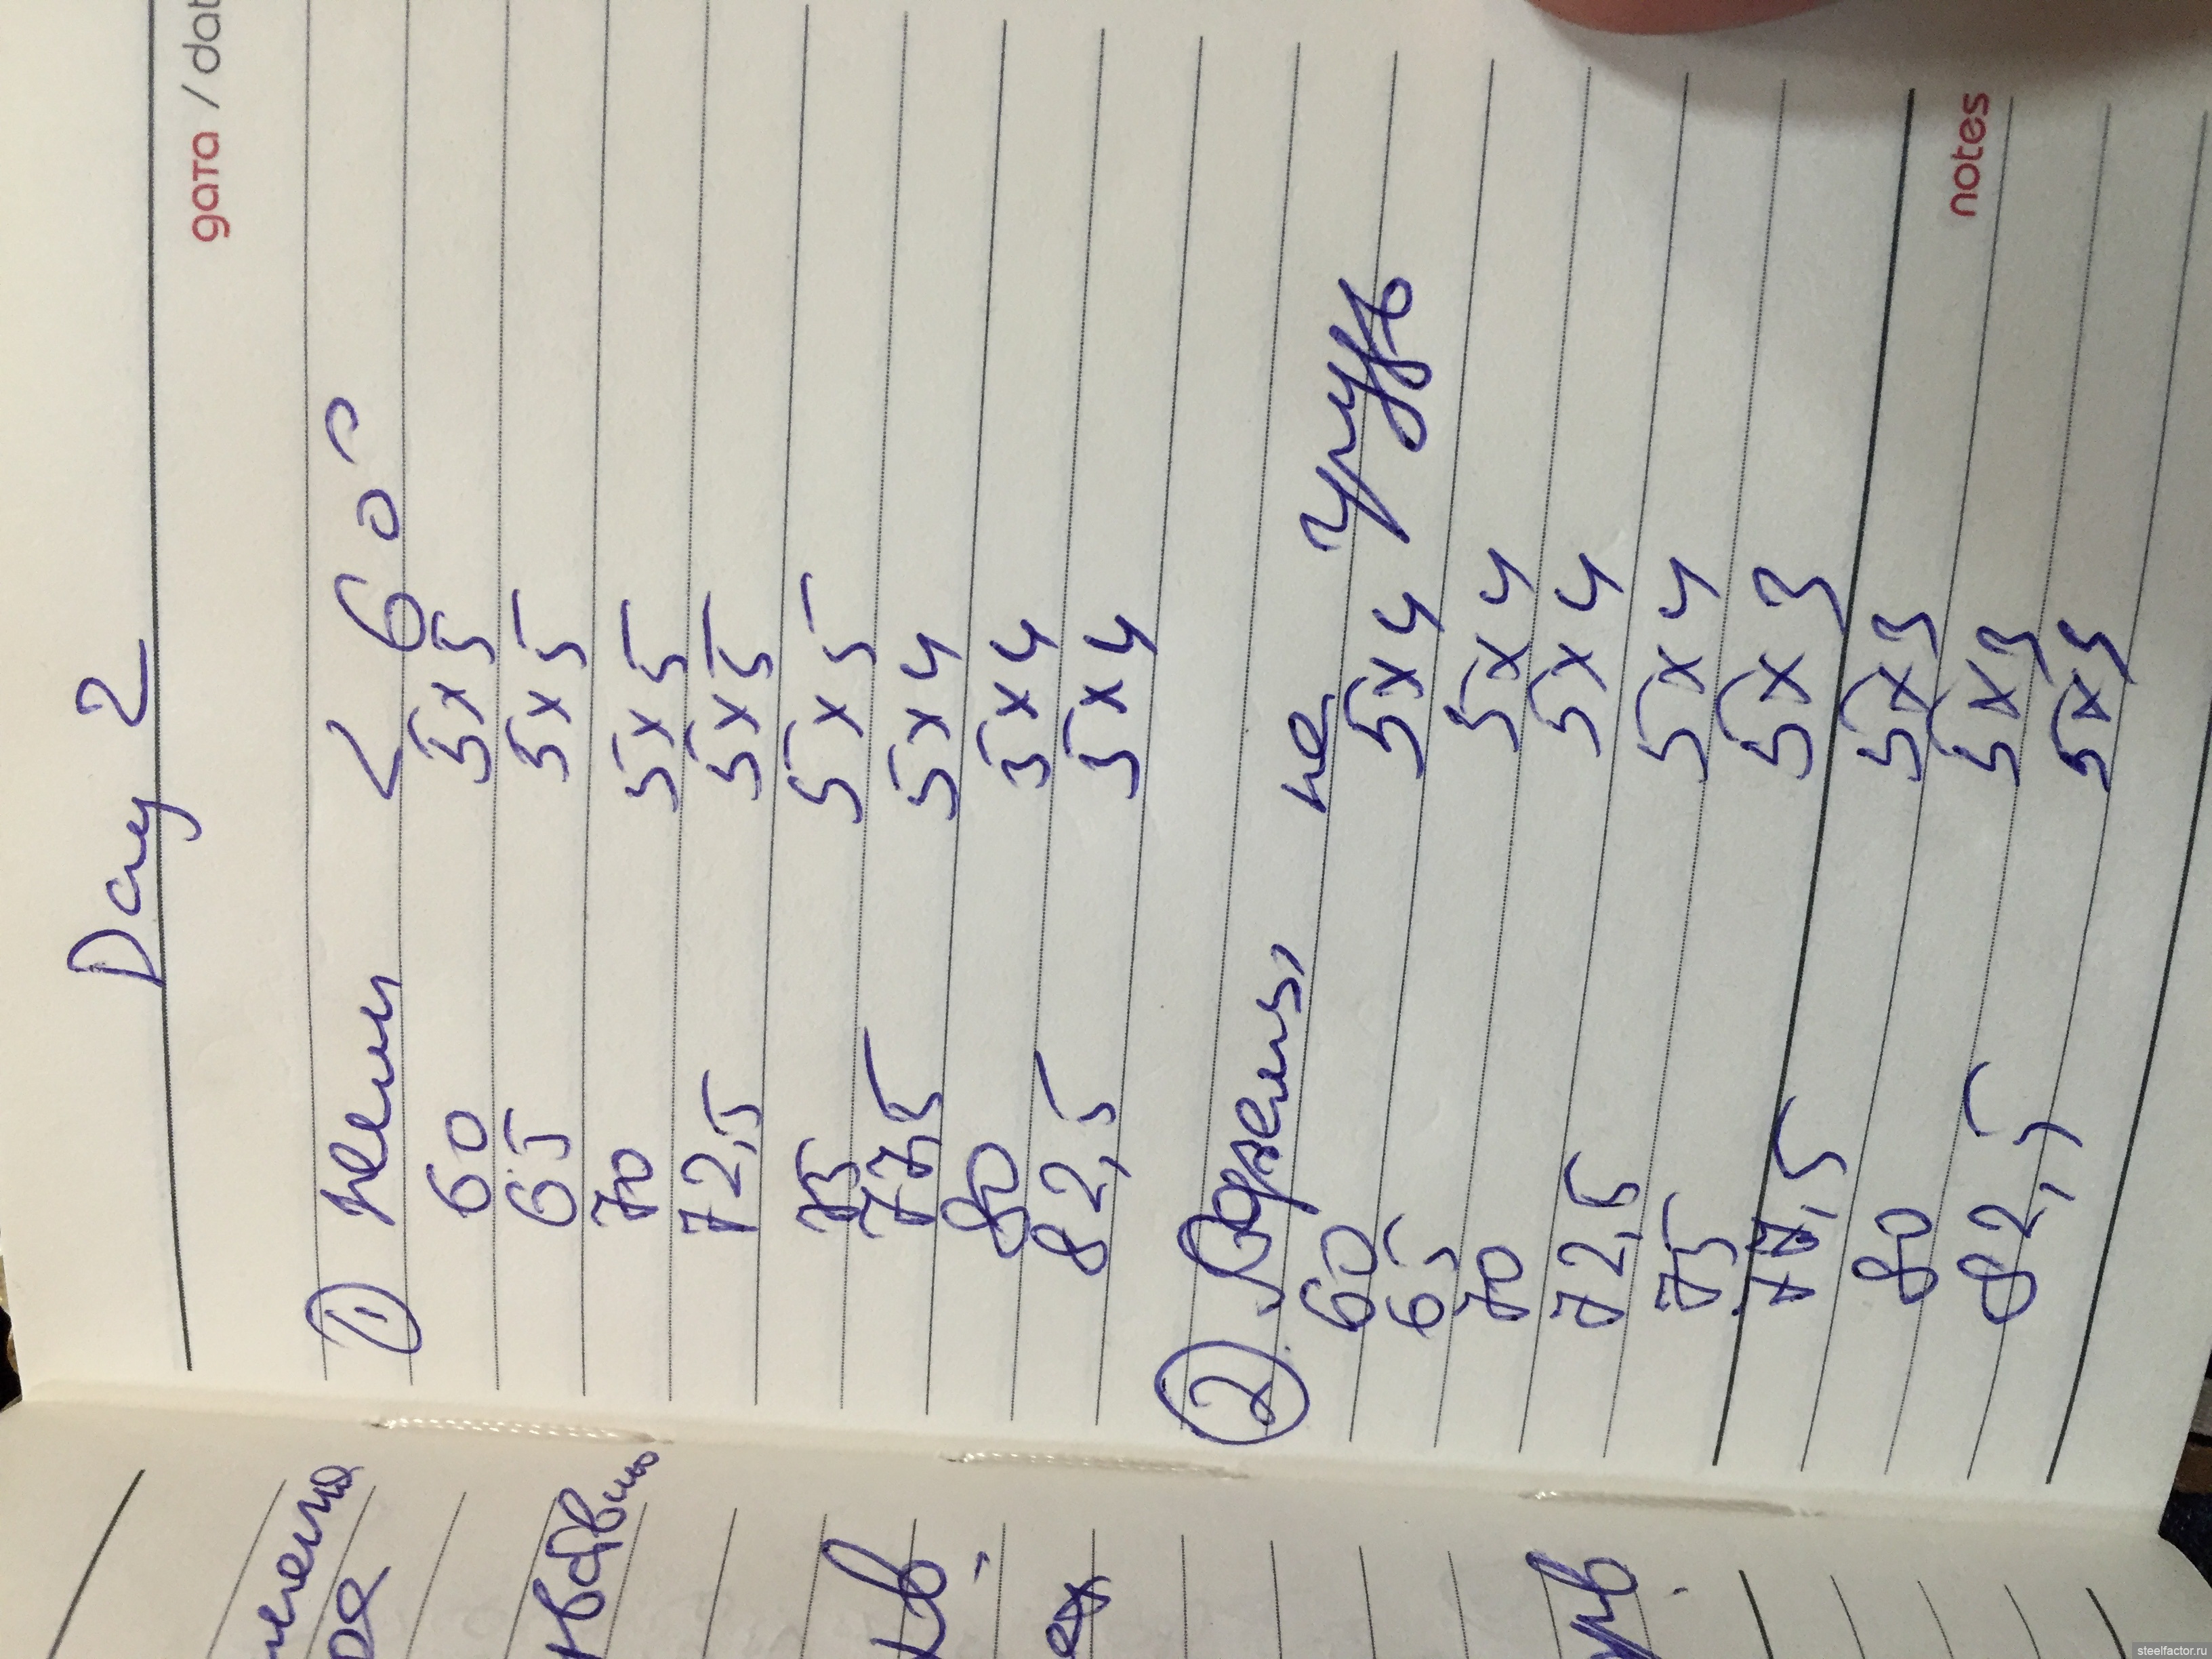 Day 2
дата / dat
① < 60°
60 5x5
65 5x5
70 5x5
72,5 5x5
75 5x5
77,5 5x4
80 5x4
82,5 5x4
② на грудь
60 5x4
65 5x4
70 5x4
72,5 5x4
75 5x3
77,5 5x3
80 5x3
82,5 5x3
notes
steelfactor.ru